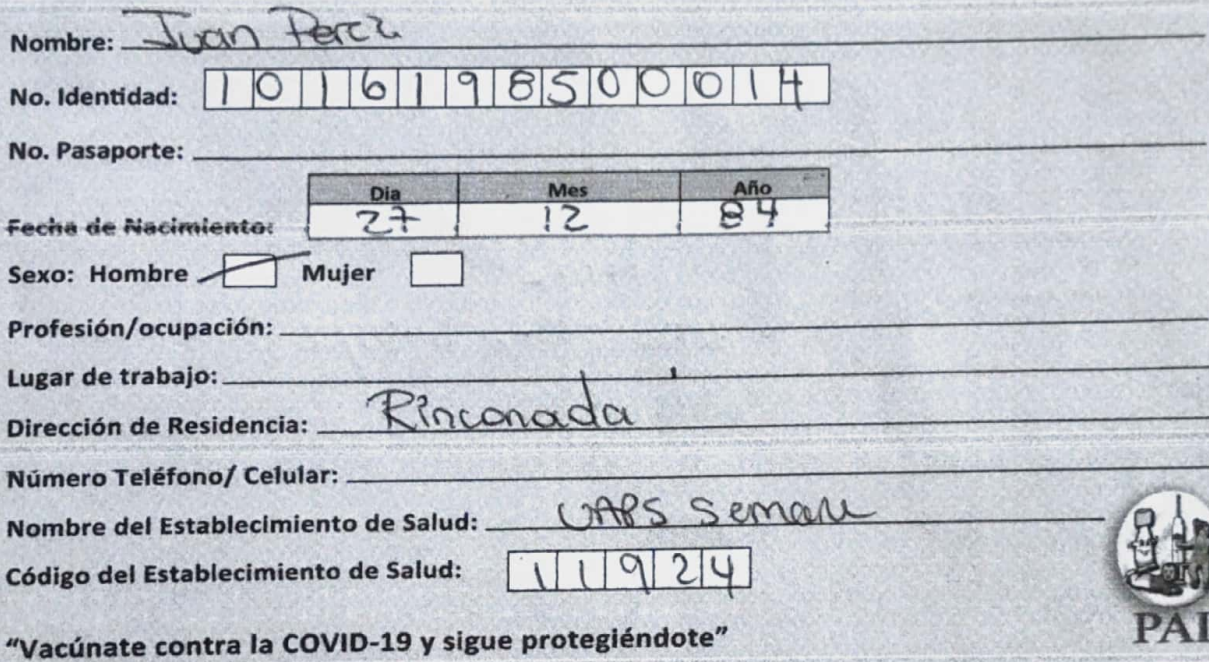 Nombre: Juan Perez
No. Identidad: 1016198500014
No. Pasaporte:
Dia Mes Año
Fecha de Nacimiento: 27 12 84
Sexo: Hombre Mujer
Profesión/ocupación:
Lugar de trabajo:
Dirección de Residencia: Rinconada
Número Teléfono/ Celular:
Nombre del Establecimiento de Salud: UAPS Semane
Código del Establecimiento de Salud: 11924
"Vacúnate contra la COVID-19 y sigue protegiéndote"
PAI